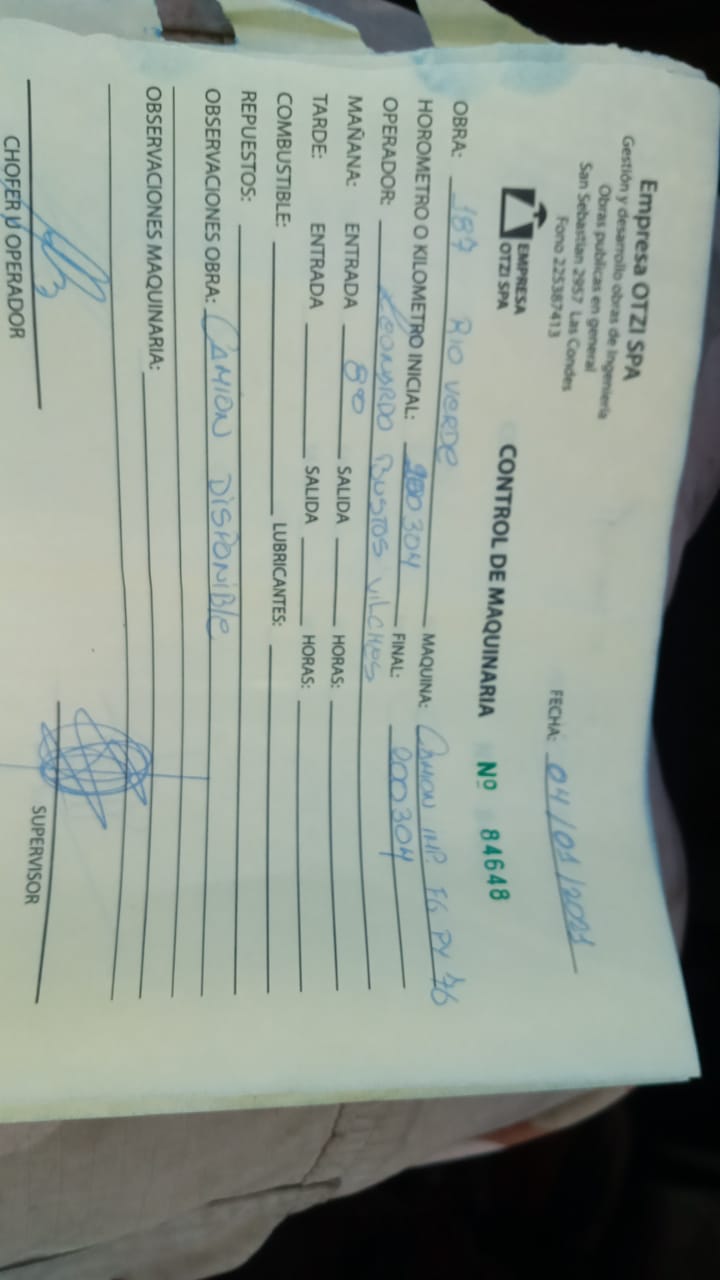 Empresa OTZI SPA
Gestión y desarrollo obras de Ingeniería
Obras publicas en general
San Sebastian 2957 Las Condes
Fono 225387413
EMPRESA
OTZI SPA
FECHA: 04/01/2021
CONTROL DE MAQUINARIA Nº 84648
OBRA: 187 RIO VERDE MAQUINA: CAMION IMP. FG PY 76
HOROMETRO O KILOMETRO INICIAL: 200304 FINAL: 200304
OPERADOR: LEONARDO BUSTOS VILCHES
MAÑANA: ENTRADA 8⁰⁰ SALIDA HORAS:
TARDE: ENTRADA SALIDA HORAS:
COMBUSTIBLE: LUBRICANTES:
REPUESTOS:
OBSERVACIONES OBRA: CAMION DISPONIBLE
OBSERVACIONES MAQUINARIA:
CHOFER U OPERADOR SUPERVISOR